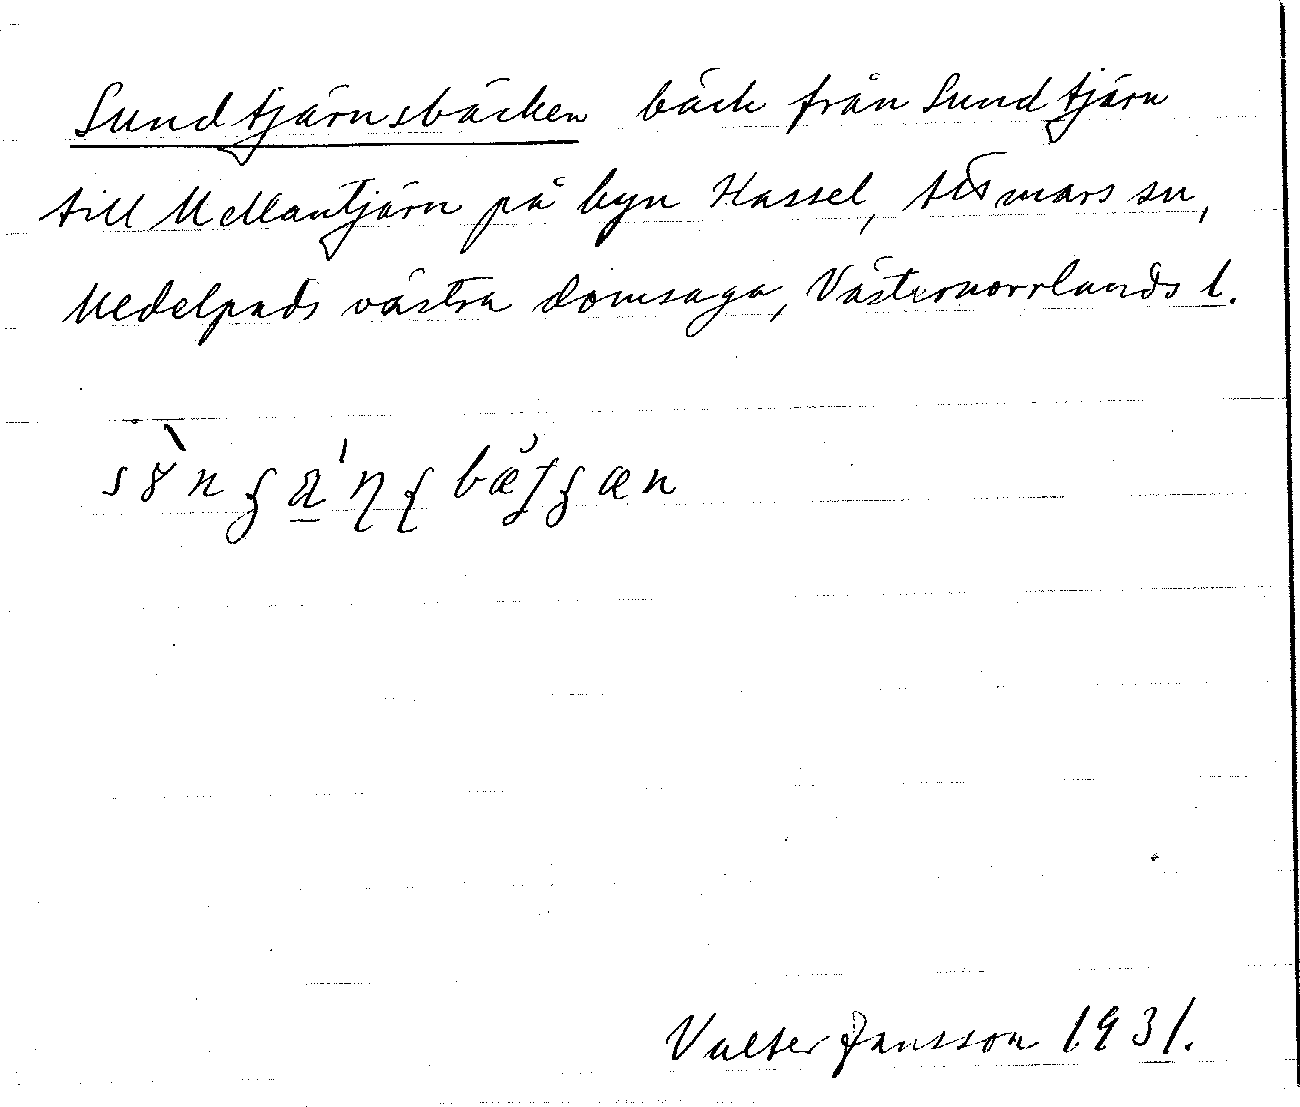 Sundtjärnsbäcken bäck från Sundtjärn
till Mellantjärn på byn Hassel, mars sn,
Medelpads västra domsaga, Västernorrlands l.
Valter Jansson 1931.